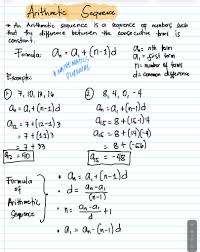 Arithmetic Sequence
→ An Arithmetic sequence is a sequence of numbers such
that the difference between the consecutive terms is
constant.
Formula: aₙ = a₁ + (n-1)d
aₙ = nth term
a₁ = first term
n = number of terms
d = common difference
Example:
① 7, 10, 13, 16
aₙ = a₁ + (n-1)d
a₁₂ = 7 + (12-1)3
= 7 + (11)3
= 7 + 33
a₁₂ = 40
② 8, 4, 0, -4
aₙ = a₁ + (n-1)d
a₁₅ = 8 + (15-1)-4
a₁₅ = 8 + (14)(-4)
= 8 + (-56)
a₁₅ = -48
Formula
of
Arithmetic
Sequence
• aₙ = a₁ + (n-1)d
• d = aₙ - a₁ / n-1
• n = aₙ - a₁ / d + 1
• a₁ = aₙ - (n-1)d